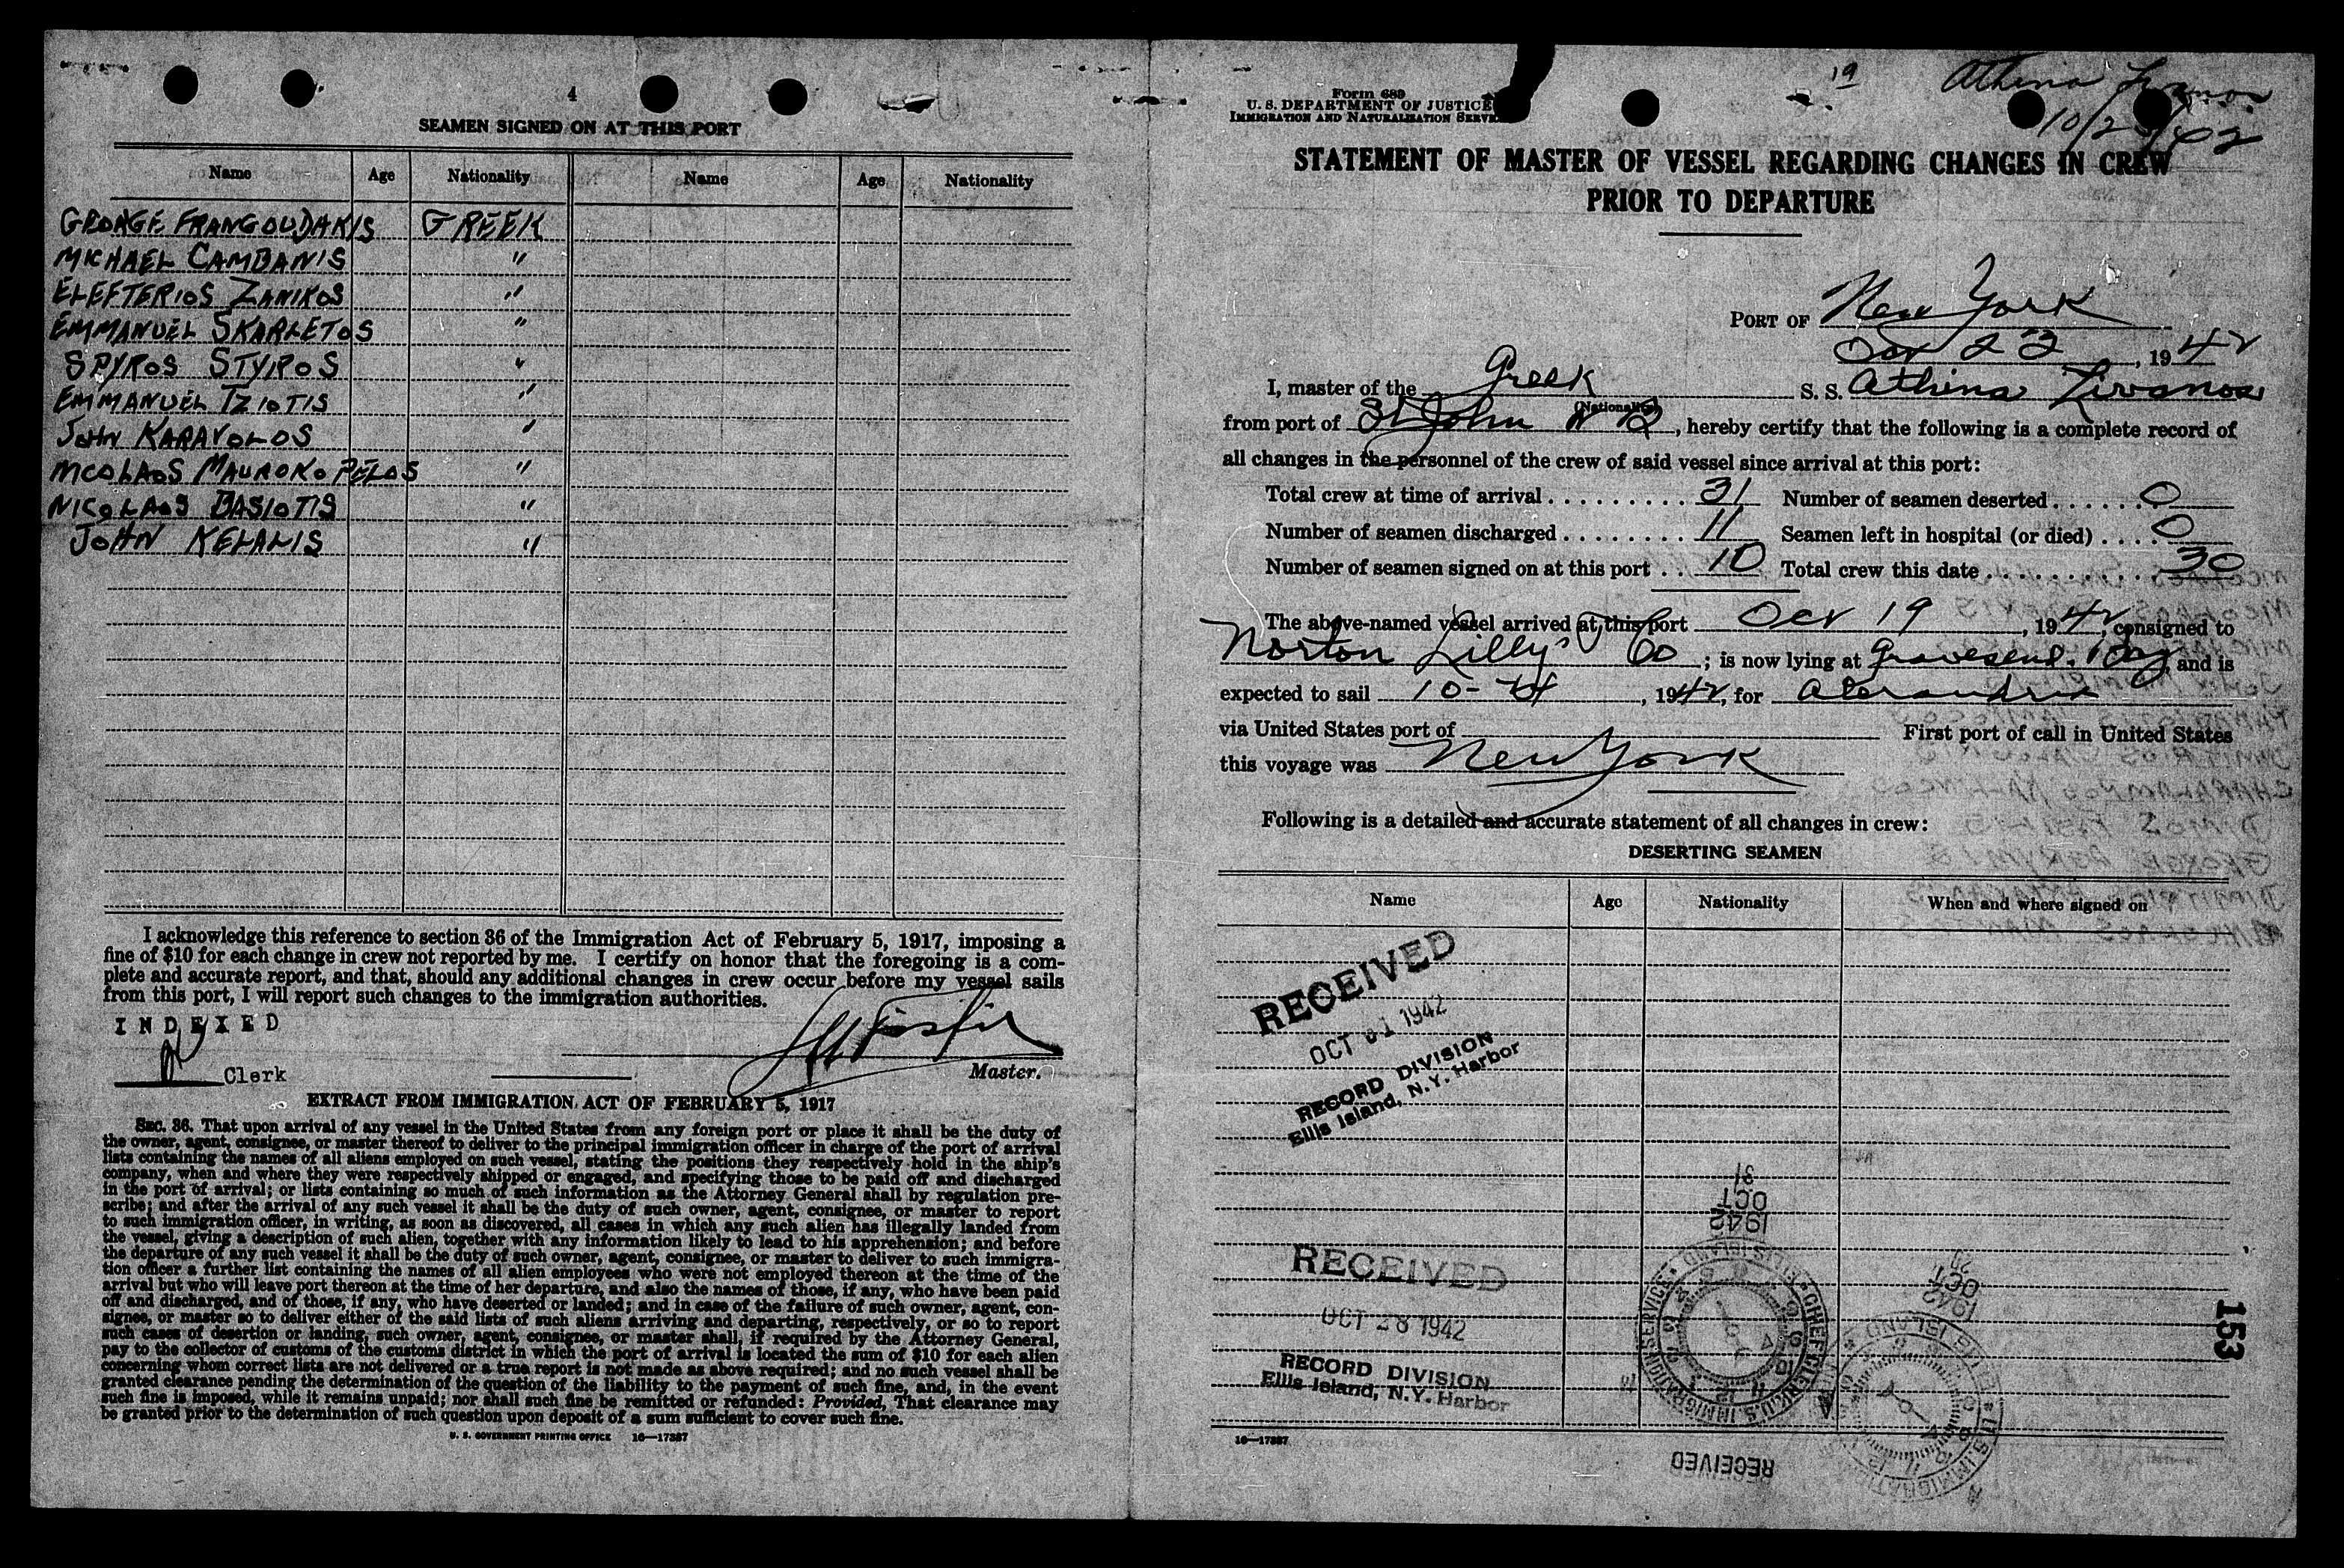 4
SEAMEN SIGNED ON AT THIS PORT
Name Age Nationality Name Age Nationality
GEORGE FRANGOUDAKIS GREEK
MICHAEL CAMBANIS "
ELEFTERIOS ZANIKOS "
EMMANUEL SKARLETOS "
SPYROS STYPOS "
EMMANUEL TZIOTIS "
JOHN KARAVOLOS "
NICOLAOS MAUROKOPELOS "
NICOLAOS BASIOTIS "
JOHN KELALIS "
I acknowledge this reference to section 36 of the Immigration Act of February 5, 1917, imposing a
fine of $10 for each change in crew not reported by me. I certify on honor that the foregoing is a com-
plete and accurate report, and that, should any additional changes in crew occur before my vessel sails
from this port, I will report such changes to the immigration authorities.
INDEXED
Clerk
Master.
EXTRACT FROM IMMIGRATION ACT OF FEBRUARY 5, 1917
SEC. 36. That upon arrival of any vessel in the United States from any foreign port or place it shall be the duty of
the owner, agent, consignee, or master thereof to deliver to the principal immigration officer in charge of the port of arrival
lists containing the names of all aliens employed on such vessel, stating the positions they respectively hold in the ship's
company, when and where they were respectively shipped or engaged, and specifying those to be paid off and discharged
in the port of arrival; or lists containing so much of such information as the Attorney General shall by regulation pre-
scribe; and after the arrival of any such vessel it shall be the duty of such owner, agent, consignee, or master to report
to such immigration officer, in writing, as soon as discovered, all cases in which any such alien has illegally landed from
the vessel, giving a description of such alien, together with any information likely to lead to his apprehension; and before
the departure of any such vessel it shall be the duty of such owner, agent, consignee, or master to deliver to such immigra-
tion officer a further list containing the names of all alien employees who were not employed thereon at the time of the
arrival but who will leave port thereon at the time of her departure, and also the names of those, if any, who have been paid
off and discharged, and of those, if any, who have deserted or landed; and in case of the failure of such owner, agent, con-
signee, or master so to deliver either of the said lists of such aliens arriving and departing, respectively, or so to report
such cases of desertion or landing, such owner, agent, consignee, or master shall, if required by the Attorney General,
pay to the collector of customs of the customs district in which the port of arrival is located the sum of $10 for each alien
concerning whom correct lists are not delivered or a true report is not made as above required; and no such vessel shall be
granted clearance pending the determination of the question of the liability to the payment of such fine, and, in the event
such fine is imposed, while it remains unpaid; nor shall such fine be remitted or refunded: Provided, That clearance may
be granted prior to the determination of such question upon deposit of a sum sufficient to cover such fine.
U. S. GOVERNMENT PRINTING OFFICE 16—17387
19
Athina Livanos
Form 689
U. S. DEPARTMENT OF JUSTICE
IMMIGRATION AND NATURALIZATION SERVICE
STATEMENT OF MASTER OF VESSEL REGARDING CHANGES IN CREW
PRIOR TO DEPARTURE
PORT OF New York
Oct 23, 1942
I, master of the Greek S. S. Athina Livanos
(Nationality)
from port of St John N B, hereby certify that the following is a complete record of
all changes in the personnel of the crew of said vessel since arrival at this port:
Total crew at time of arrival 31 Number of seamen deserted 0
Number of seamen discharged 11 Seamen left in hospital (or died) 0
Number of seamen signed on at this port 10 Total crew this date 30
The above-named vessel arrived at this port Oct 19, 1942, consigned to
Norton Lilly Co; is now lying at Gravesend Bay, and is
expected to sail 10-24, 1942, for Alexandria
via United States port of First port of call in United States
this voyage was New York
Following is a detailed and accurate statement of all changes in crew:
DESERTING SEAMEN
Name Age Nationality When and where signed on
RECEIVED
OCT 31 1942
RECORD DIVISION
Ellis Island, N.Y. Harbor
31
OCT
1942
RECEIVED
OCT 28 1942
RECORD DIVISION
Ellis Island, N.Y. Harbor
OCT
1942
153
16—17387
RECEIVED